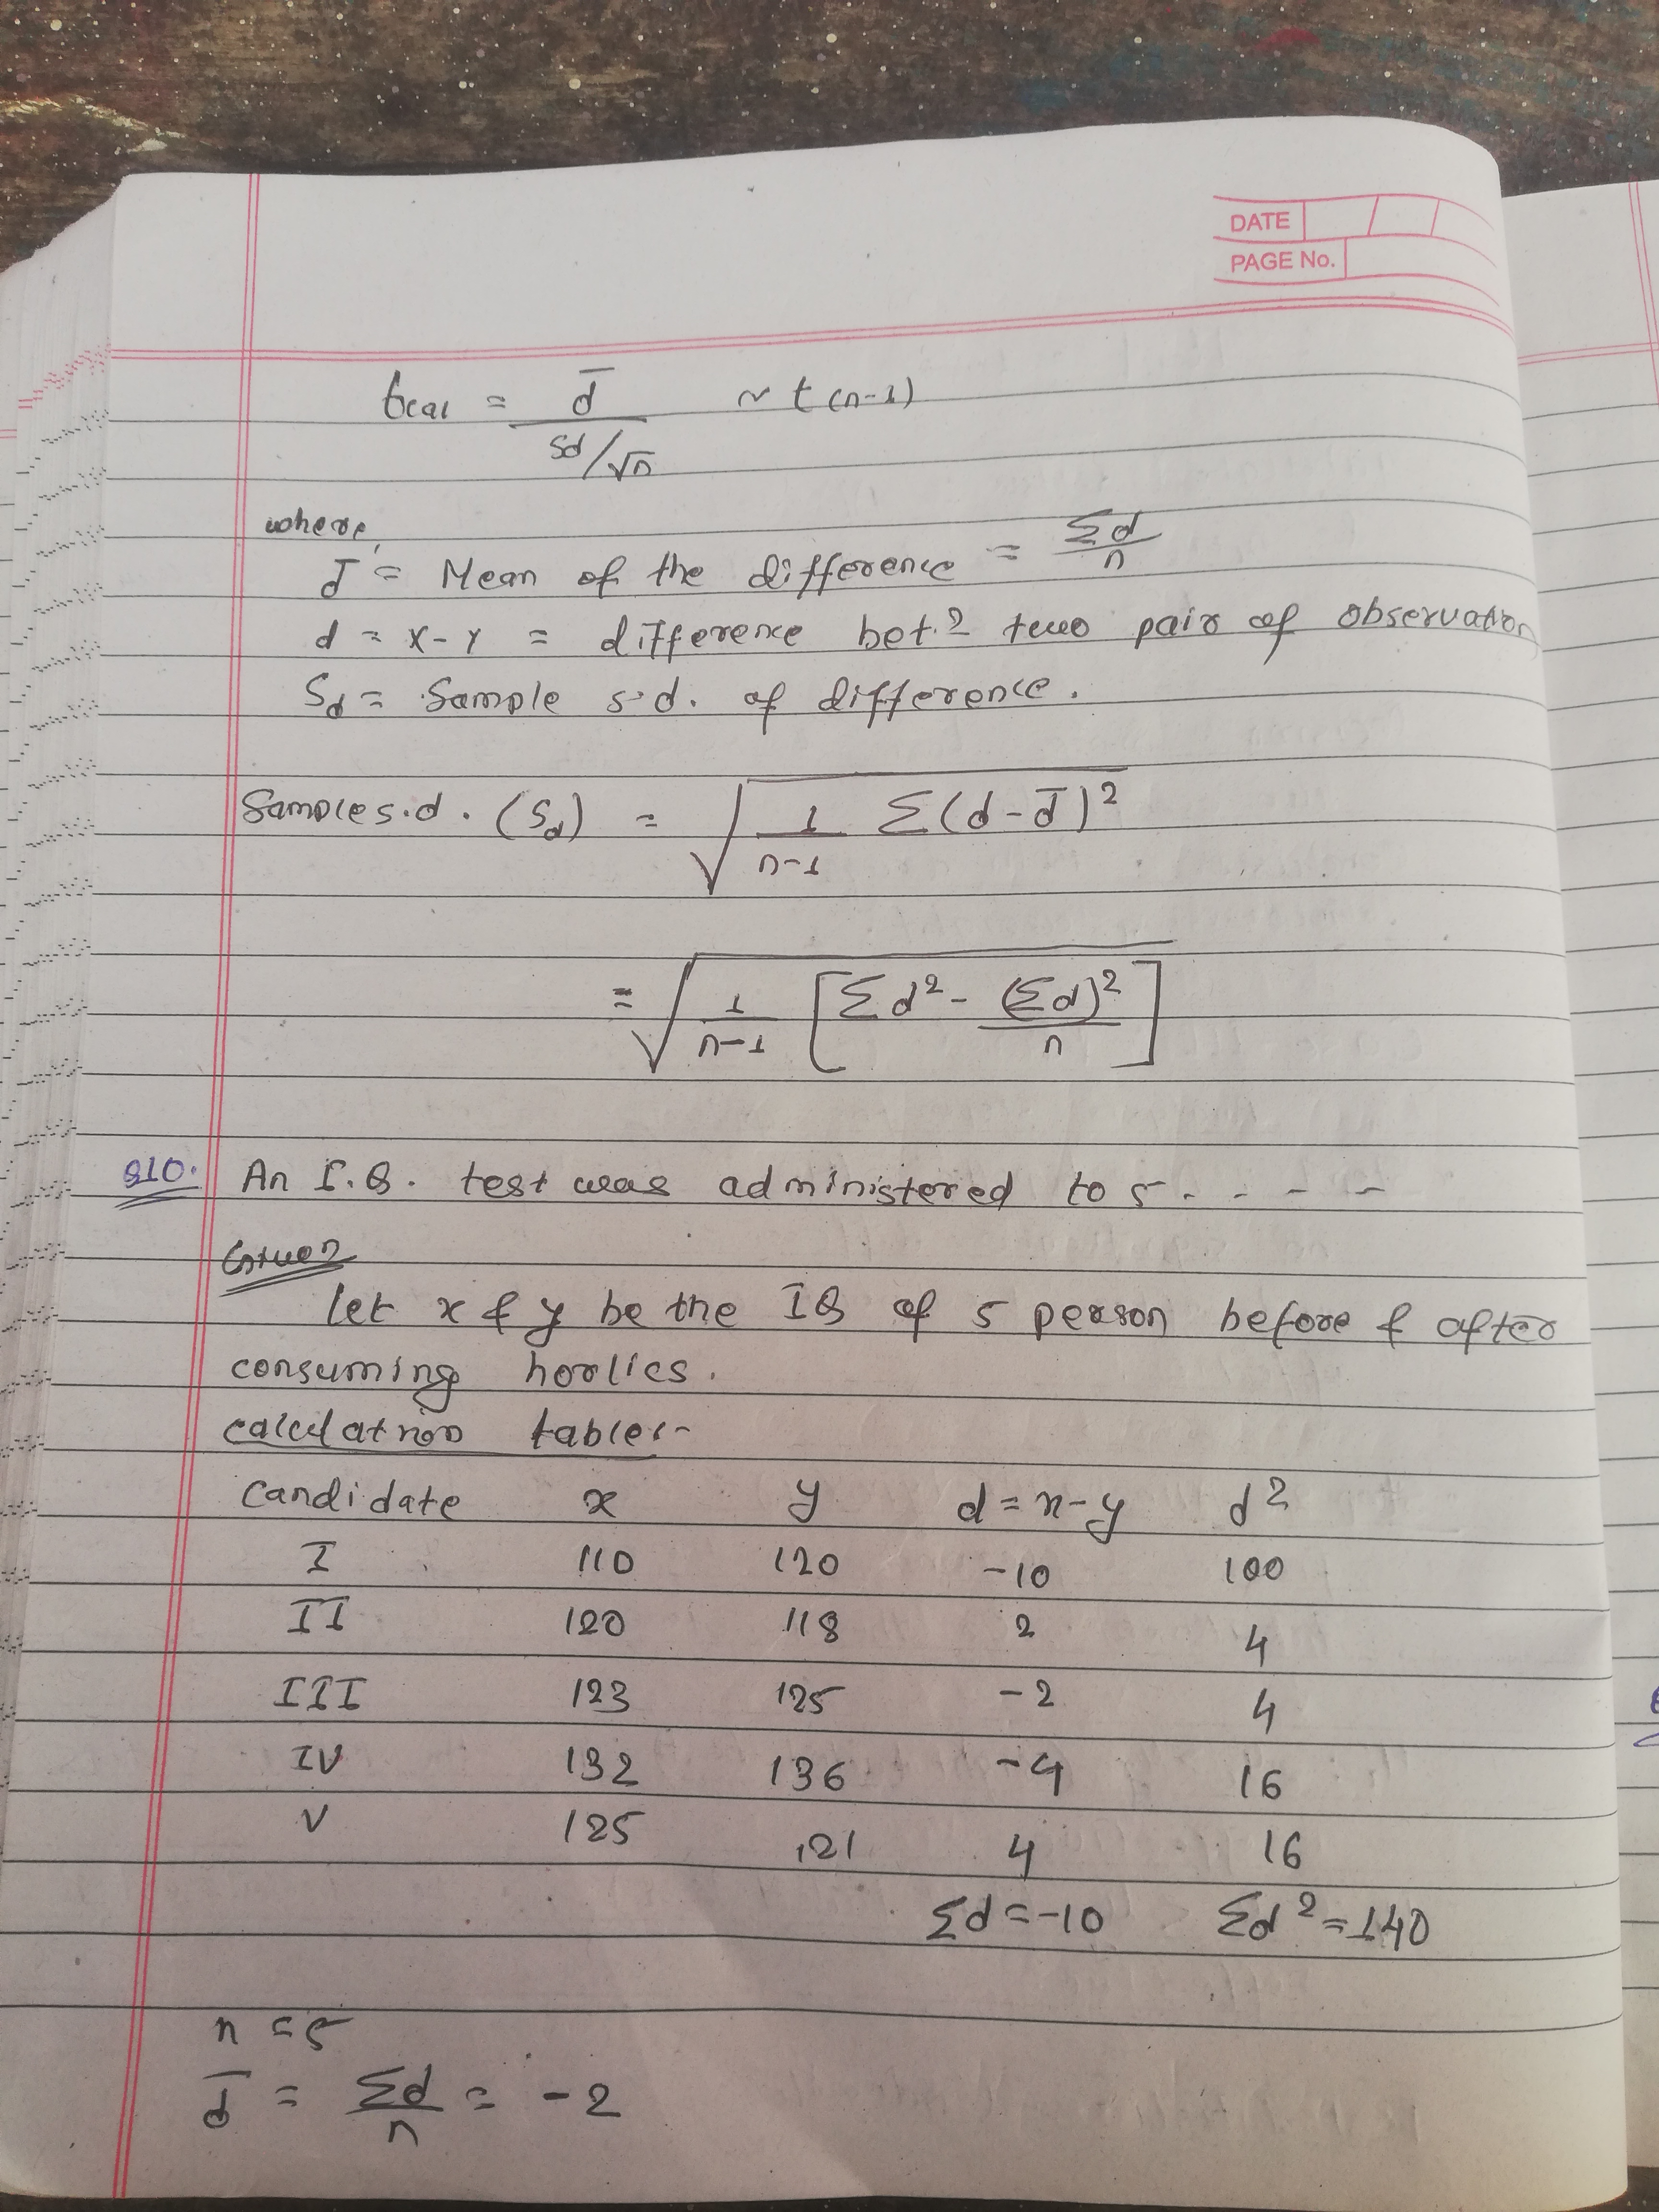 DATE
PAGE No.
tcal = d̄ / (Sd/√n) ~ t(n-1)
where,
d̄ = Mean of the difference = Σd/n
d = x-y = difference bet.n two pair of observation
Sd = Sample s.d. of difference.
Sample s.d. (Sd) = √(1/(n-1) Σ(d-d̄)²)
= √(1/(n-1) [Σd² - (Σd)²/n])
Q10. An I.Q. test was administered to 5 - - - -
Given
Let x & y be the IQ of 5 person before & after
consuming horlics.
calculation table:-
Candidate x y d = x-y d²
I 110 120 -10 100
II 120 118 2 4
III 123 125 -2 4
IV 132 136 -4 16
V 125 121 4 16
Σd = -10 Σd² = 140
n = 5
d̄ = Σd/n = -2